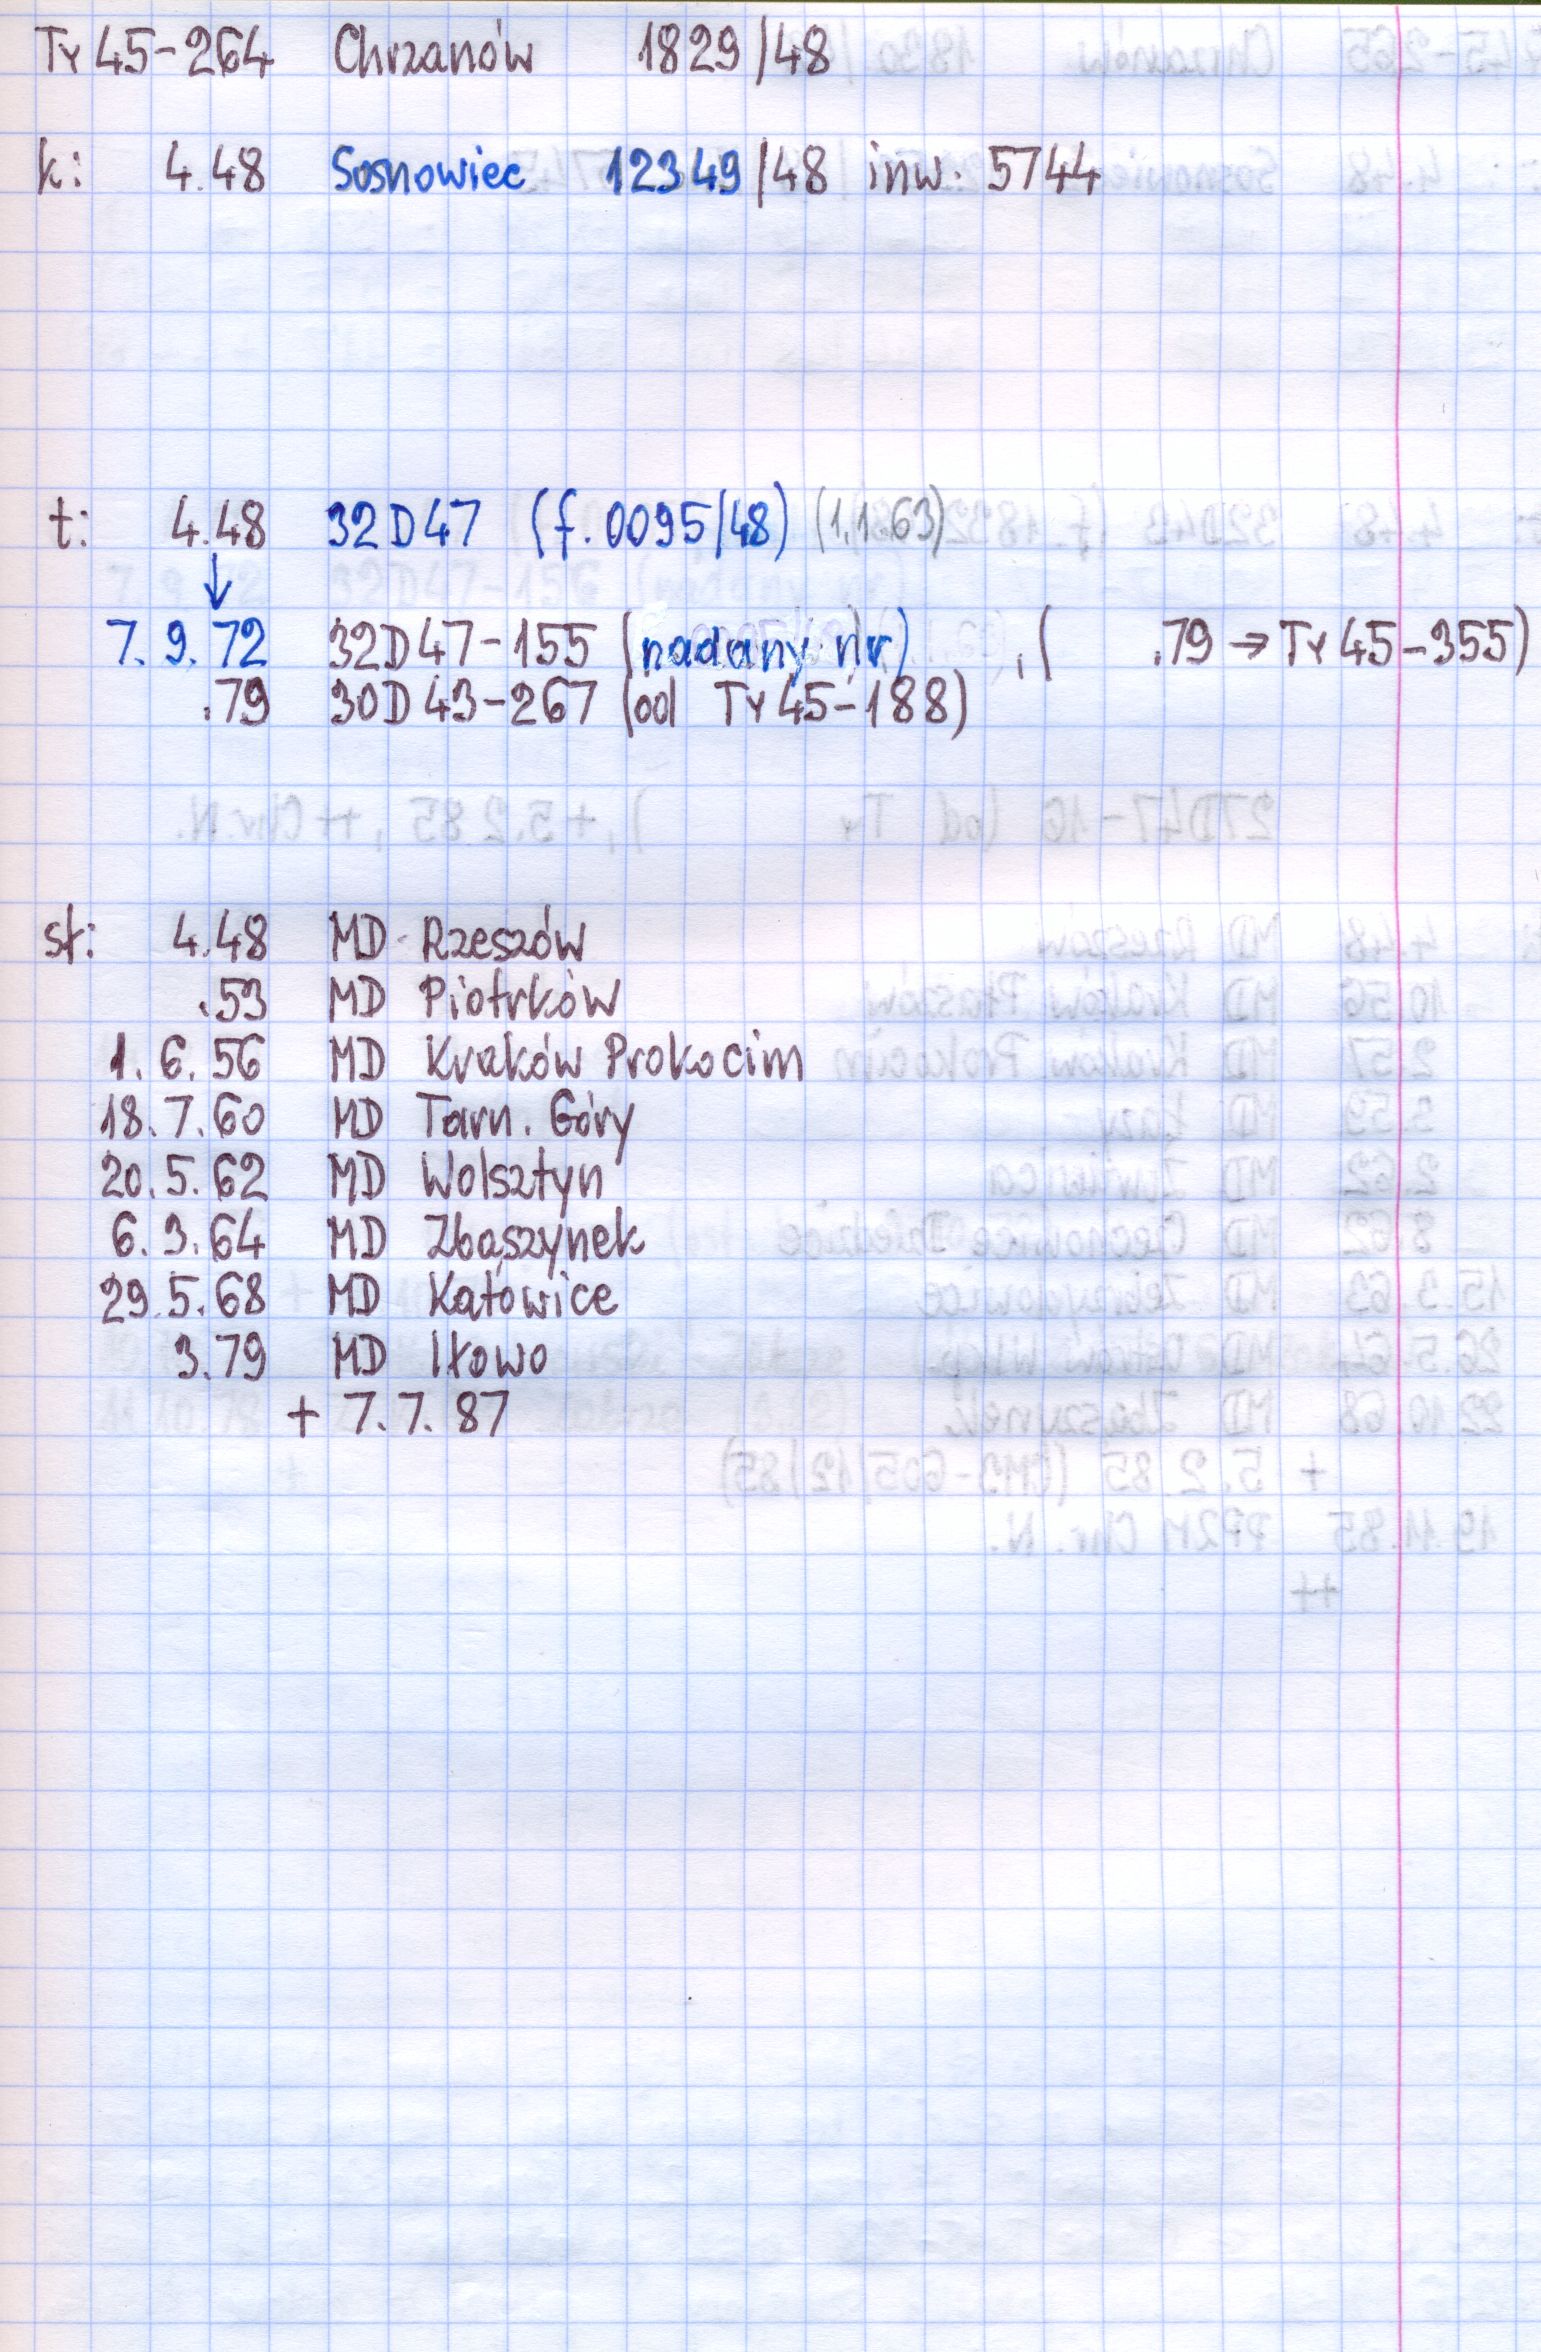 Ty45-264 Chrzanów 1829/48
k: 4.48 Sosnowiec 12349/48 inw. 5744
t: 4.48 32D47 (f.0095/48) (1,1,63)
↓
7.9.72 32D47-155 (nadany nr) , ( .79 → Ty45-355)
.79 30D43-267 (od Ty45-188)
st: 4.48 MD Rzeszów
.53 MD Piotrków
1.6.56 MD Kraków Prokocim
18.7.60 MD Tarn. Góry
20.5.62 MD Wolsztyn
6.3.64 MD Zbąszynek
29.5.68 MD Katowice
3.79 MD Iłowo
+ 7.7.87